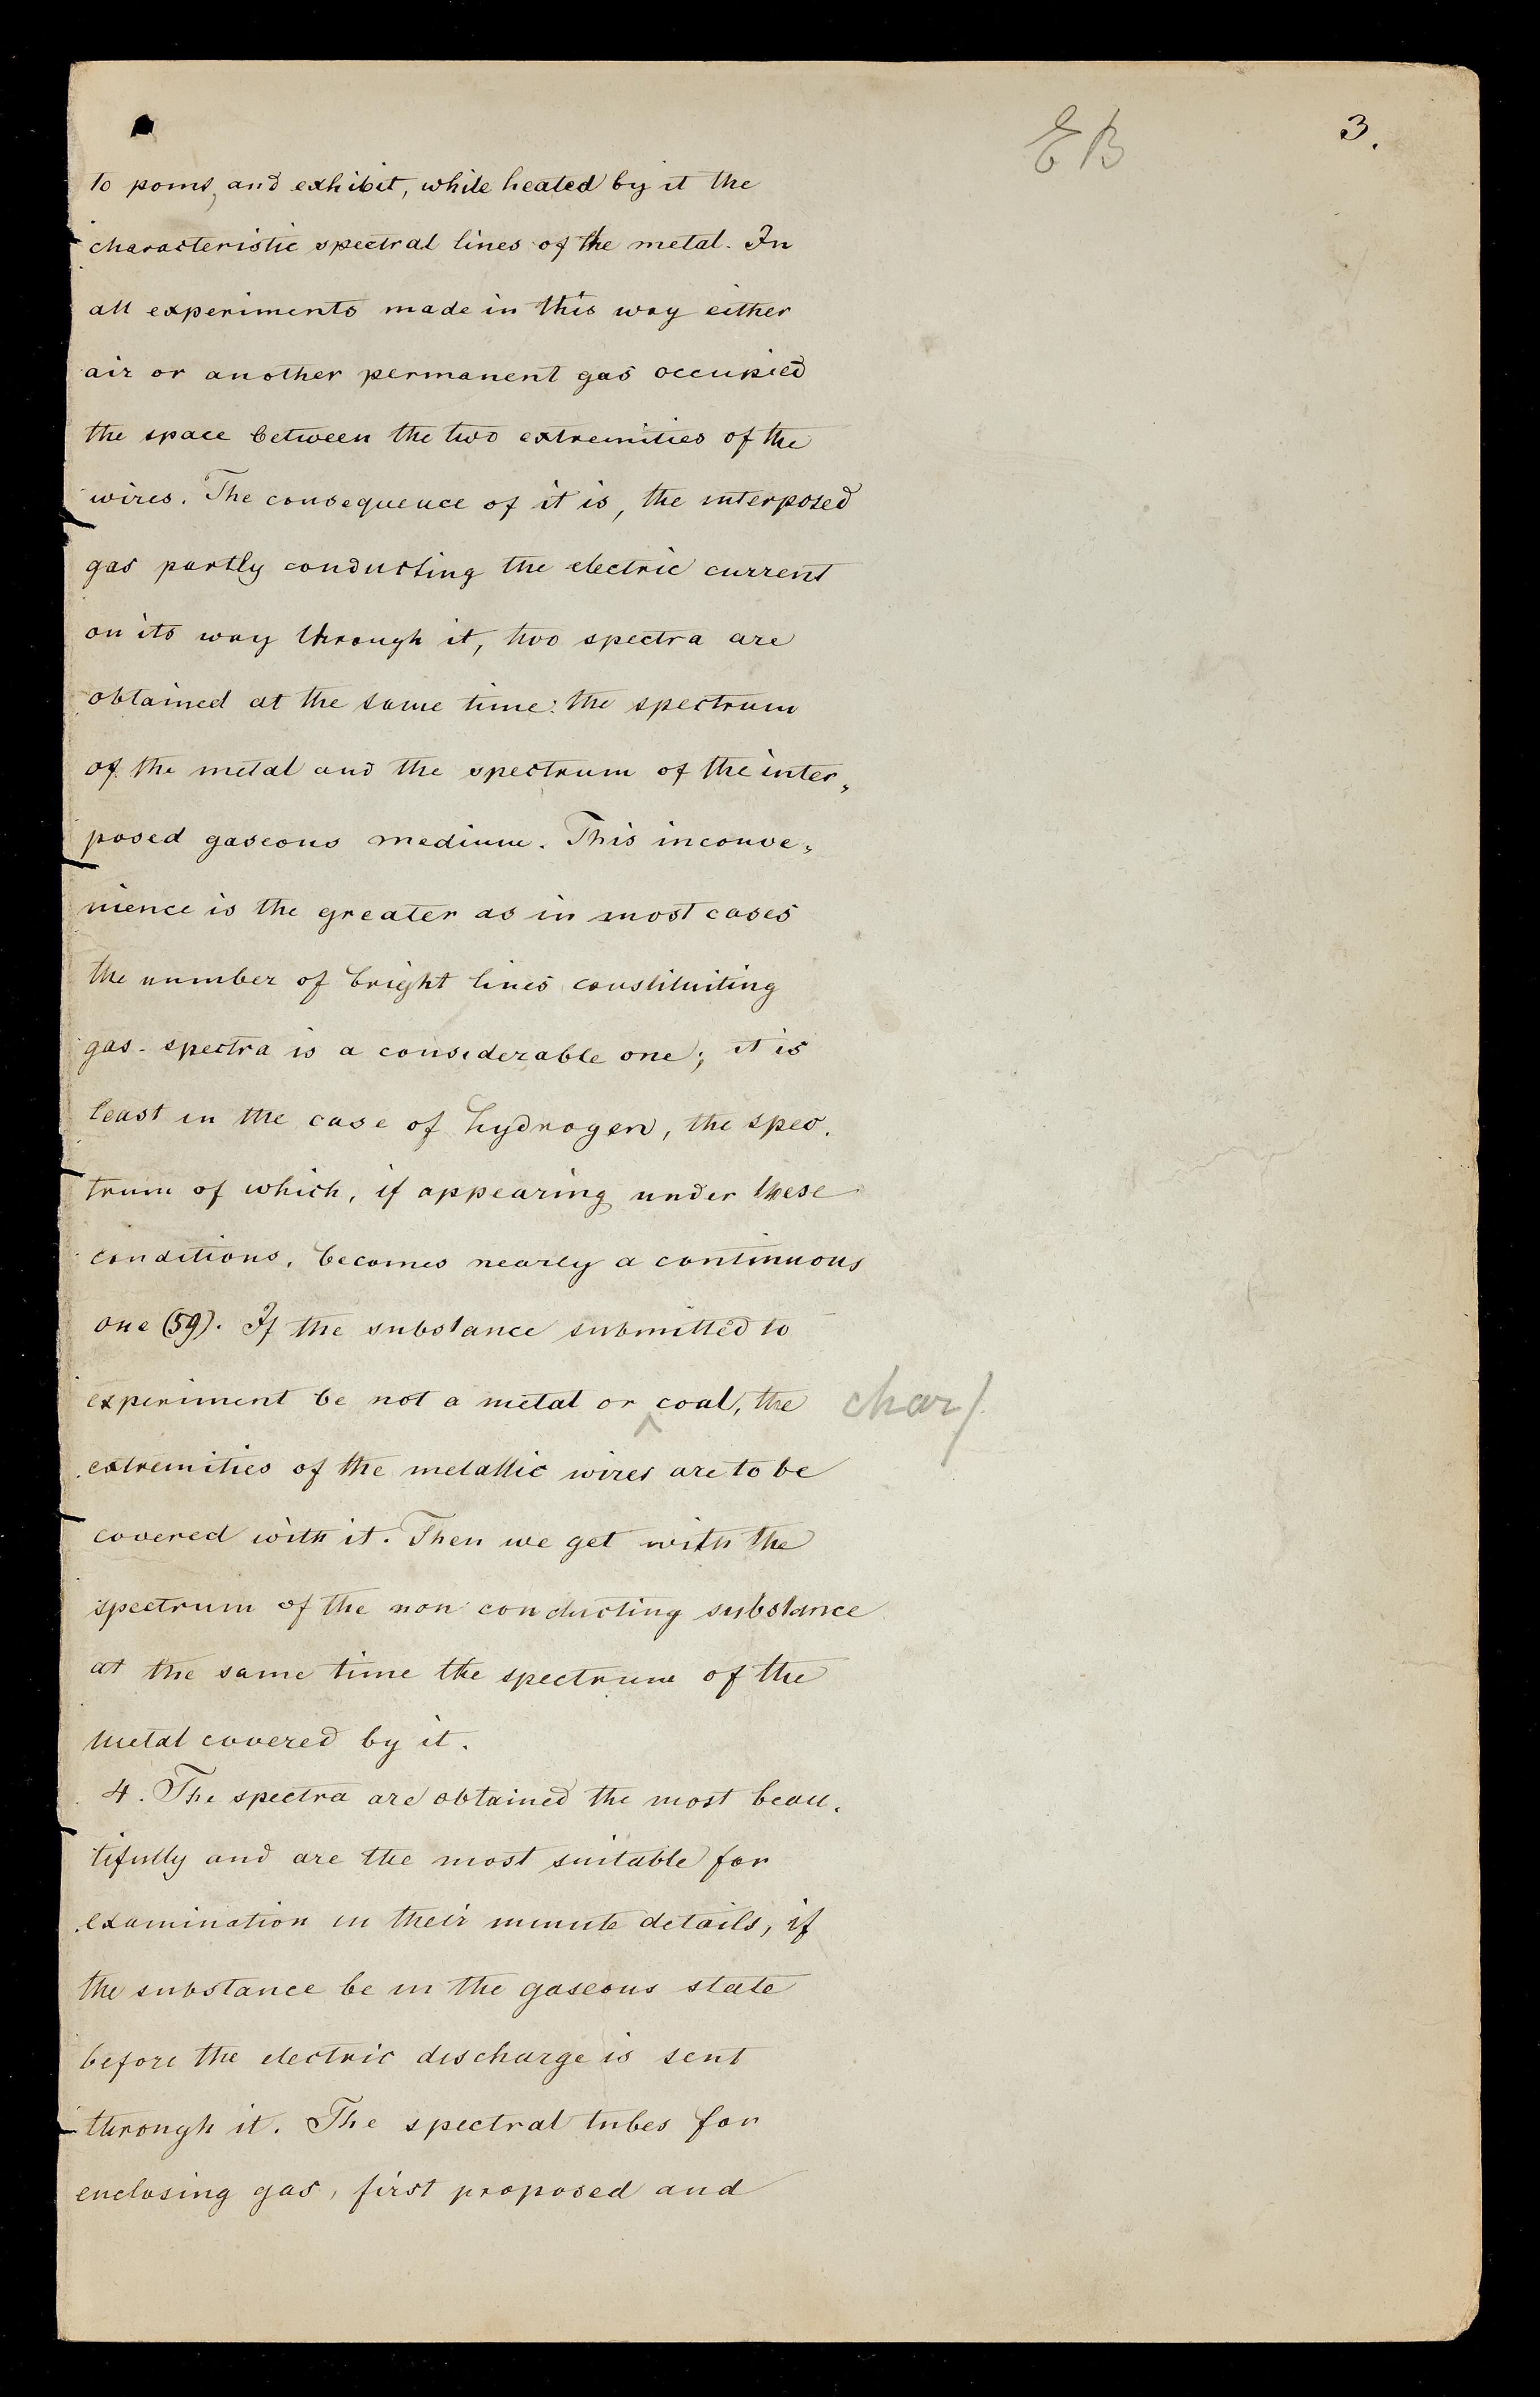 EB
3.
to poms, and exhibit, while heated by it the
characteristic spectral lines of the metal. In
all experiments made in this way either
air or another permanent gas occupied
the space between the two extremities of the
wires. The consequence of it is, the interposed
gas partly conducting the electric current
on its way through it, two spectra are
obtained at the same time: the spectrum
of the metal and the spectrum of the inter„
posed gaseous medium. This inconve„
nience is the greater as in most cases
the number of bright lines constituiting
gas-spectra is a considerable one; it is
least in the case of hydrogen, the spec.
trum of which, if appearing under these
conditions, becomes nearly a continuous
one (59). If the substance submitted to
experiment be not a metal or ‸ coal, the char/
extremities of the metallic wires are to be
covered with it. Then we get with the
spectrum of the non conducting substance
at the same time the spectrum of the
metal covered by it.
4. The spectra are obtained the most beau.
tifully and are the most suitable for
examination in their minute details, if
the substance be in the gaseous state
before the electric discharge is sent
through it. The spectral tubes for
enclosing gas, first proposed and